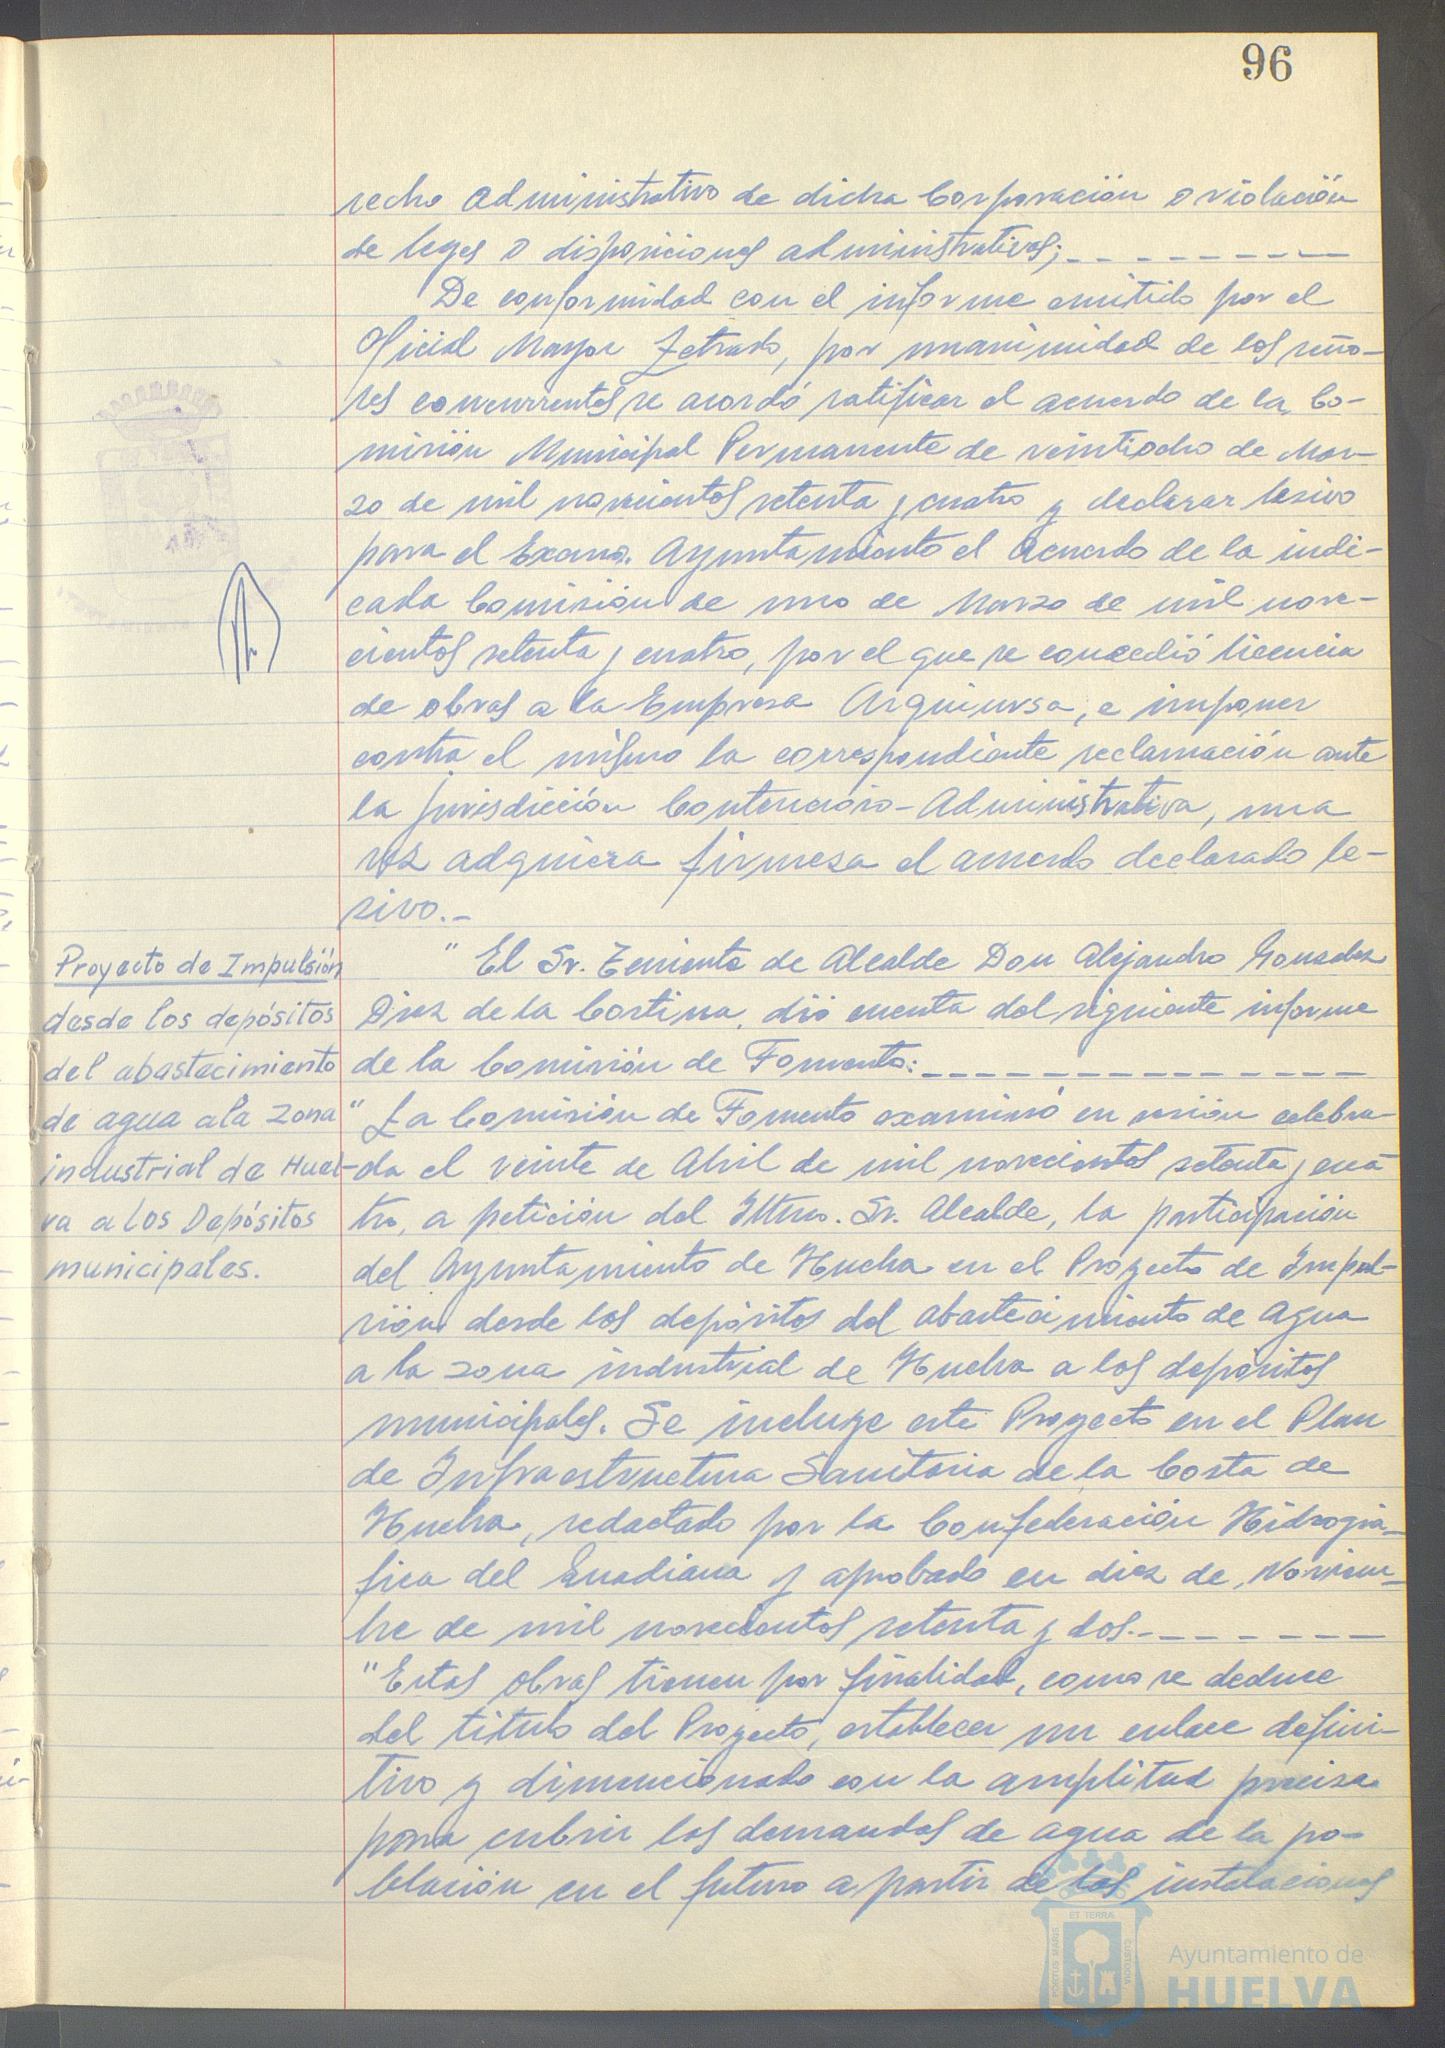 96
recho administrativo de dicha Corporación o violación
de leyes o disposiciones administrativas;
De conformidad con el informe emitido por el
Oficial Mayor Letrado, por unanimidad de los seño-
res concurrentes se acordó ratificar el acuerdo de la Co-
misión Municipal Permanente de veintiocho de Mar-
zo de mil novecientos setenta y cuatro y declarar lesivo
para el Excmo. Ayuntamiento el Acuerdo de la indi-
cada Comisión de uno de Marzo de mil nove-
cientos setenta y cuatro, por el que se concedió licencia
de obras a la Empresa Arquinursa, e imponer
contra el mismo la correspondiente reclamación ante
la jurisdicción Contencioso-Administrativa, una
vez adquiera firmeza el acuerdo declarado le-
sivo.-
Proyecto de Impulsión
desde los depósitos
del abastecimiento
de agua a la zona
industrial de Huel-
va a los Depósitos
municipales.
"El Sr. Teniente de Alcalde Don Alejandro Gonzalez
Diez de la Cortina, dió cuenta del siguiente informe
de la Comisión de Fomento:
"La Comisión de Fomento examinó en sesión celebra-
da el veinte de Abril de mil novecientos setenta y cua-
tro, a petición del Iltmo. Sr. Alcalde, la participación
del Ayuntamiento de Huelva en el Proyecto de Impul-
sión desde los depósitos del abastecimiento de agua
a la zona industrial de Huelva a los depósitos
municipales. Se incluye este Proyecto en el Plan
de Infraestructura Sanitaria de la Costa de
Huelva, redactado por la Confederación Hidrográ-
fica del Guadiana y aprobado en diez de Noviem-
bre de mil novecientos setenta y dos.-
"Estas obras tienen por finalidad, como se deduce
del título del Proyecto, establecer un enlace defini-
tivo y dimencionado con la amplitud precisa
para cubrir las demandas de agua de la po-
blación en el futuro a partir de las instalaciones
PORTUS MARIS
ET TERRÆ
CUSTODIA
Ayuntamiento de
HUELVA